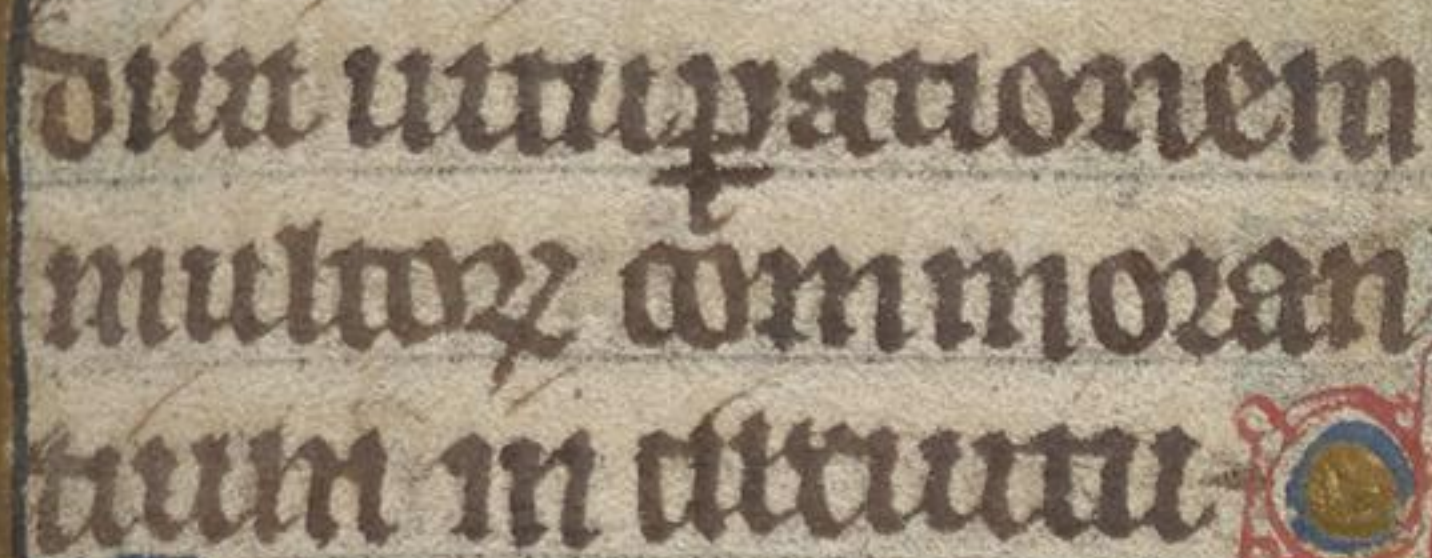 diui uituꝑationem
multoꝝ commoran
tium in circuitu